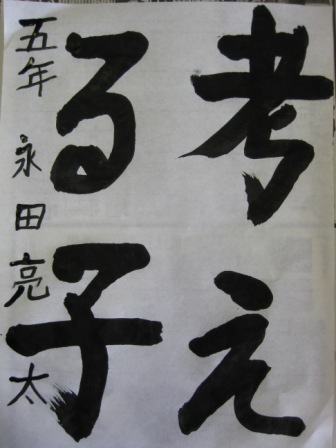 考え
る子
五年 永田亮太